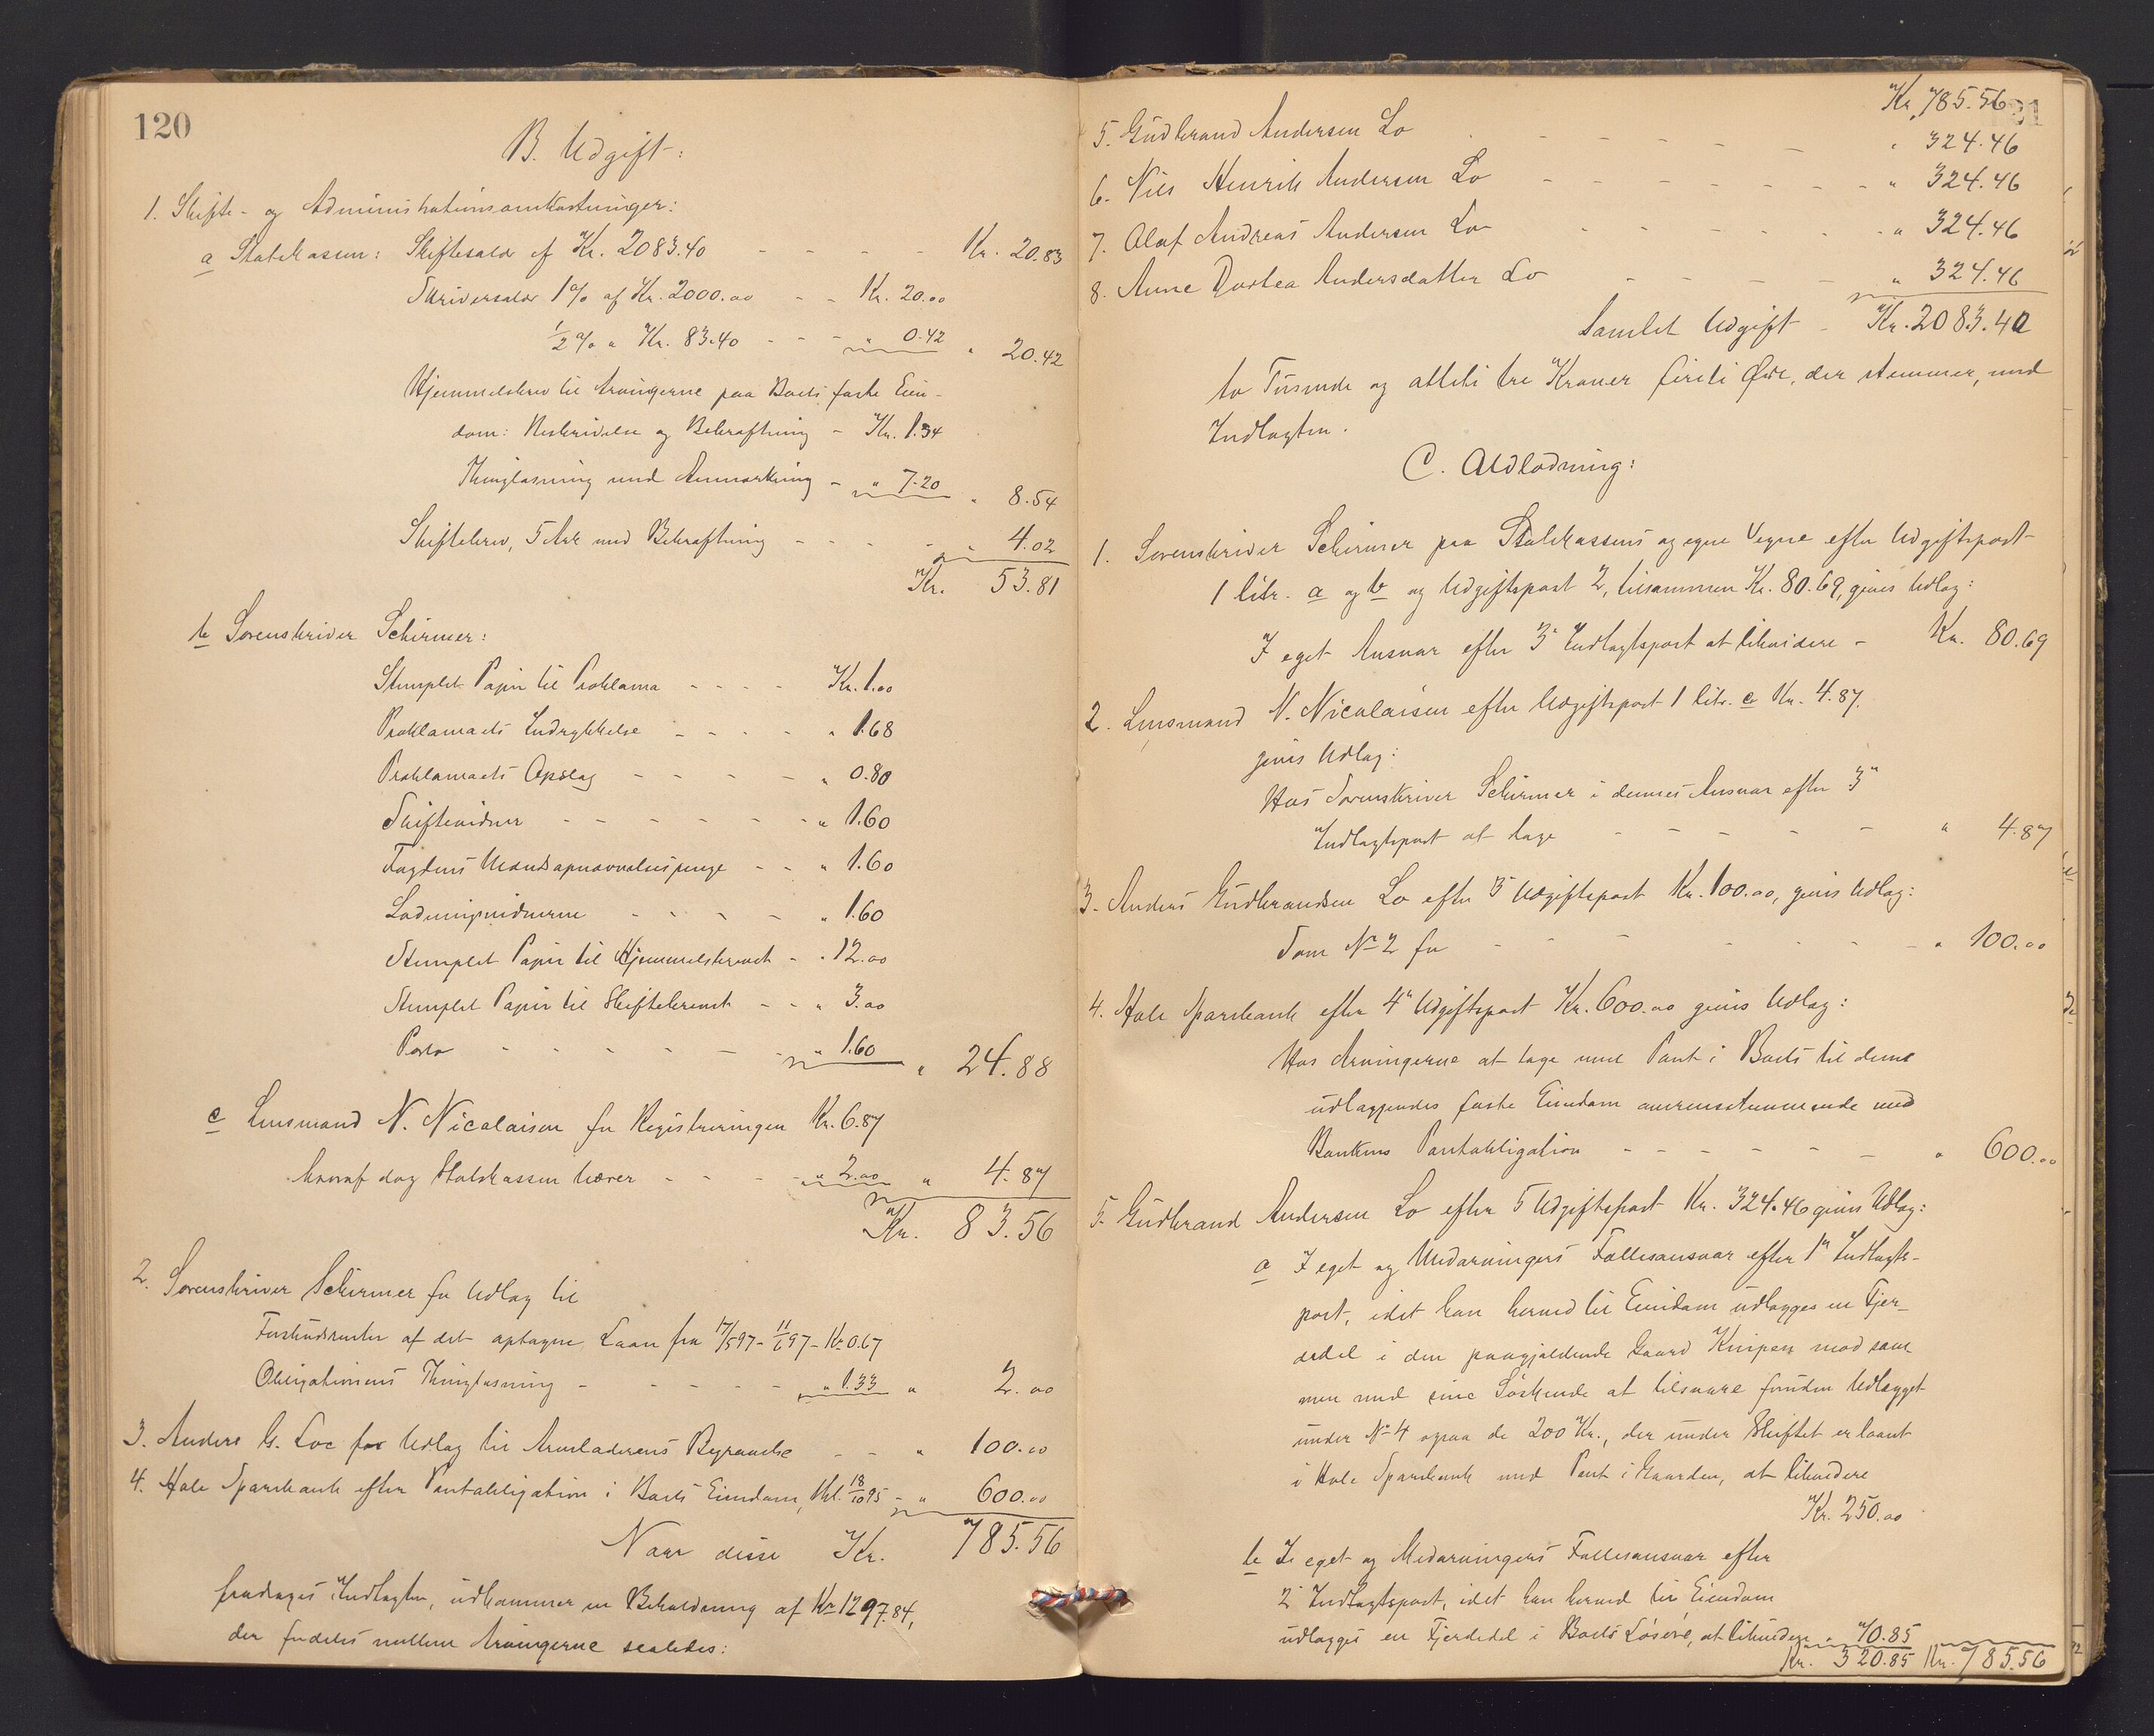 120
B. Udgift:
1. Skifte- og Administrationsomkostninger:
a Statskassen: Skiftesalær af Kr. 2083.40 - - - - Kr. 20.83
Skriversalær 1% af Kr. 2000.00 - - Kr. 20.00
1/2 % " Kr. 83.40 - - - " 0.42 " 20.42
Hjemmelsbrev til Arvingerne paa Boets faste Eien-
dom: Beskrivelse og Bekræftning - Kr. 1.34
Thinglæsning med Anmærkning - " 7.20 " 8.54
Skiftebrev, 5 Ark med Bekræftning - - - - " 4.02
Kr. 53.81
b Sorenskriver Schirmer:
Stemplet Papir til Proklama - - - - Kr. 1.00
Proklamaets Indrykkelse - - - - " 1.68
Proklamaets Opslag - - - - " 0.80
Skiftevidner - - - - - - " 1.60
Fogdens - - " 1.60
Lodningsvidnerne - - - - " 1.60
Stemplet Papir til Hjemmelsbrevet - " 12.00
Stemplet Papir til Skiftebrevet - - " 3.00
Porto - - - - - - " 1.60 " 24.88
c Lensmand N. Nicolaisen for Registreringen Kr. 6.87
hvoraf dog Statskassen bærer - - - " 2.00 " 4.87
Kr. 83.56
2. Sorenskriver Schirmer for Udlag til
Forskudsrenter af det optagne Laan fra 17/5 97 - 11/6 97 - Kr. 0.67
Obligationens Thinglæsning - - - - - " 1.33 " 2.00
3. Anders G. Loe for Udlag til Arveladerens Begravelse - - " 100.00
4. Hole Sparebank efter Pantobligation i Boets Eiendom, Thl. 18/10 95 - " 600.00
Naar disse Kr. 785.56
fradrages Indtægten, udkommer en Beholdning af Kr. 1297.84,
der fordeles mellem Arvingerne saaledes:
Kr. 785.56
121
5. Gudbrand Andersen Lo - - - - - " 324.46
6. Nils Henrik Andersen Lo - - - - - - " 324.46
7. Olaf Andreas Andersen Lo - - - - - " 324.46
8. Anne Dortea Andersdatter Lo - - - - " 324.46
Samlet Udgift - Kr. 2083.40
to Tusende og otteti tre Kroner firti Øre, der stemmer med
Indtægten.
C. Udlodning:
1. Sorenskriver Schirmer paa Statskassens og egne Vegne efter Udgiftspost
1 litr. a og b og Udgiftspost 2, tilsammen Kr. 80.69, gives Udlæg:
I eget Ansvar efter 3' Indtægtspost at likvidere - Kr. 80.69
2. Lensmand N. Nicolaisen efter Udgiftspost 1 litr. c Kr. 4.87.
gives Udlæg:
Hos Sorenskriver Schirmer i dennes Ansvar efter 3"
Indtægtspost at tage - - - - - " 4.87
3. Anders Gudbrandsen Lo efter 3' Udgiftspost Kr. 100.00, gives Udlæg:
Som No 2 for - - - - - - " 100.00
4. Hole Sparebank efter 4" Udgiftspost Kr. 600.00 gives Udlæg:
Hos Arvingerne at tage med Pant i Boets til dem
udlæggendes faste Eiendom overensstemmende med
Bankens Pantobligation - - - - - - " 600.00
5. Gudbrand Andersen Lo efter 5 Udgiftspost Kr. 324.46 gives Udlæg:
a I eget og Medarvingers Fællesansvar efter 1" Indtægts-
post, idet han herved til Eiendom udlægges en Fjer-
dedel i den paagjældende Gaard Knipen mod sam-
men med sine Søskende at tilsvare foruden Udlægget
under No 4 ogsaa de 200 Kr., der under Skiftet er laant
i Hole Sparebank med Pant i Gaarden, at likvidere
Kr. 250.00
b I eget og Medarvingers Fællesansvar efter
2' Indtægtspost, idet han herved til Eiendom
udlægges en Fjerdedel i Boets Løsøre, at likvidere " 70.85
Kr. 320.85 Kr. 785.56